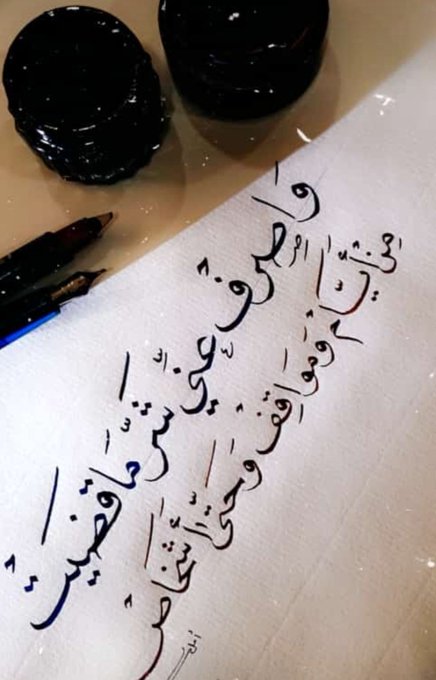 وَاصْرِفْ عَنِّي شَرَّ مَا قَضَيْتَ
مِنْ أَيَّامٍ وَمَوَاقِفْ وَحَتَّى أَشْخَاصْ